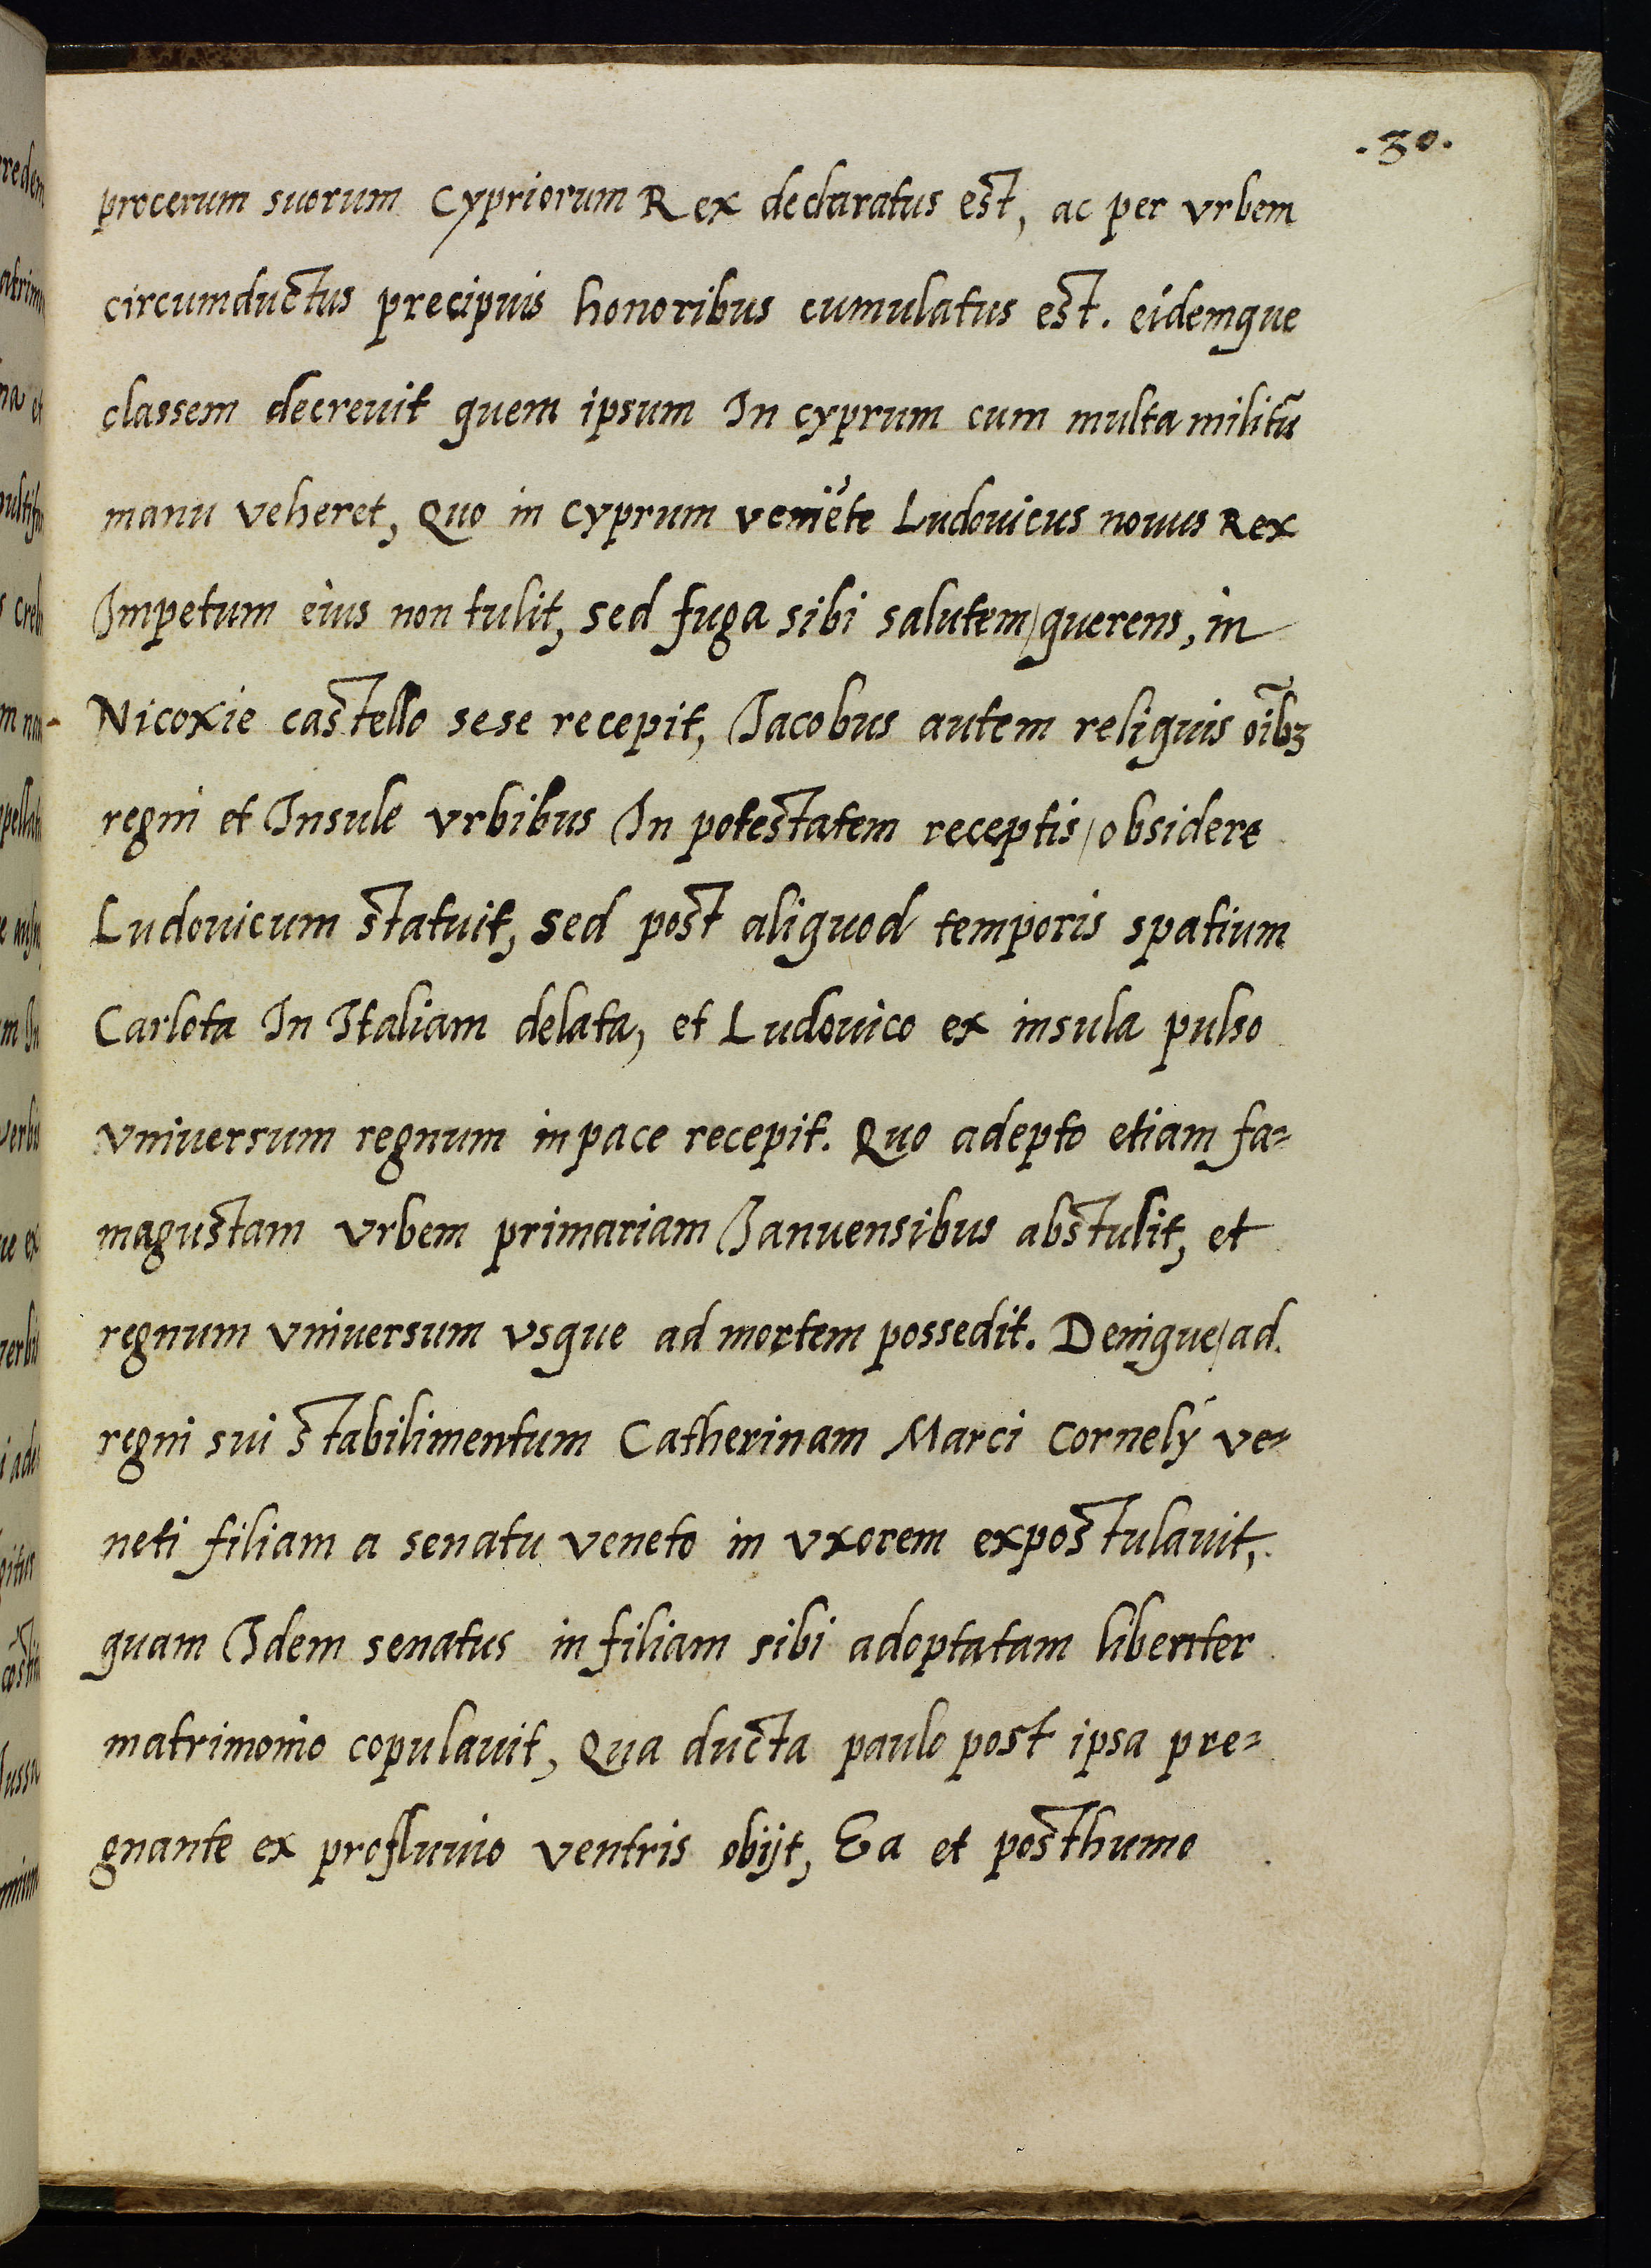 .30.
procerum suorum Cypriorum Rex declaratus est, ac per vrbem
circumductus precipuis honoribus cumulatus est. eidemque
classem decreuit quem ipsum In cyprum cum multa militū
manu veheret, Quo in Cyprum veniēte Ludouicus nouus Rex
Impetum eius non tulit, sed fuga sibi salutem/querens, in
Nicoxie castello sese recepit, Iacobus autem reliquis oībꝫ
regni et Insule vrbibus In potestatem receptis/obsidere
Ludouicum statuit, sed post aliquod temporis spatium
Carlota In Italiam delata, et Ludouico ex insula pulso
vniuersum regnum in pace recepit. Quo adepto etiam fa=
magustam vrbem primariam Ianuensibus abstulit, et
regnum vniuersum vsque ad mortem possedit. Denique/ad.
regni sui stabilimentum Catherinam Marci Cornelÿ ve=
neti filiam a senatu veneto in vxorem expostulauit,
quam Idem senatus in filiam sibi adoptatam libenter
matrimonio copulauit, Qua ducta paulo post ipsa pre=
gnante ex profluuio ventris obijt, Ea et posthumo